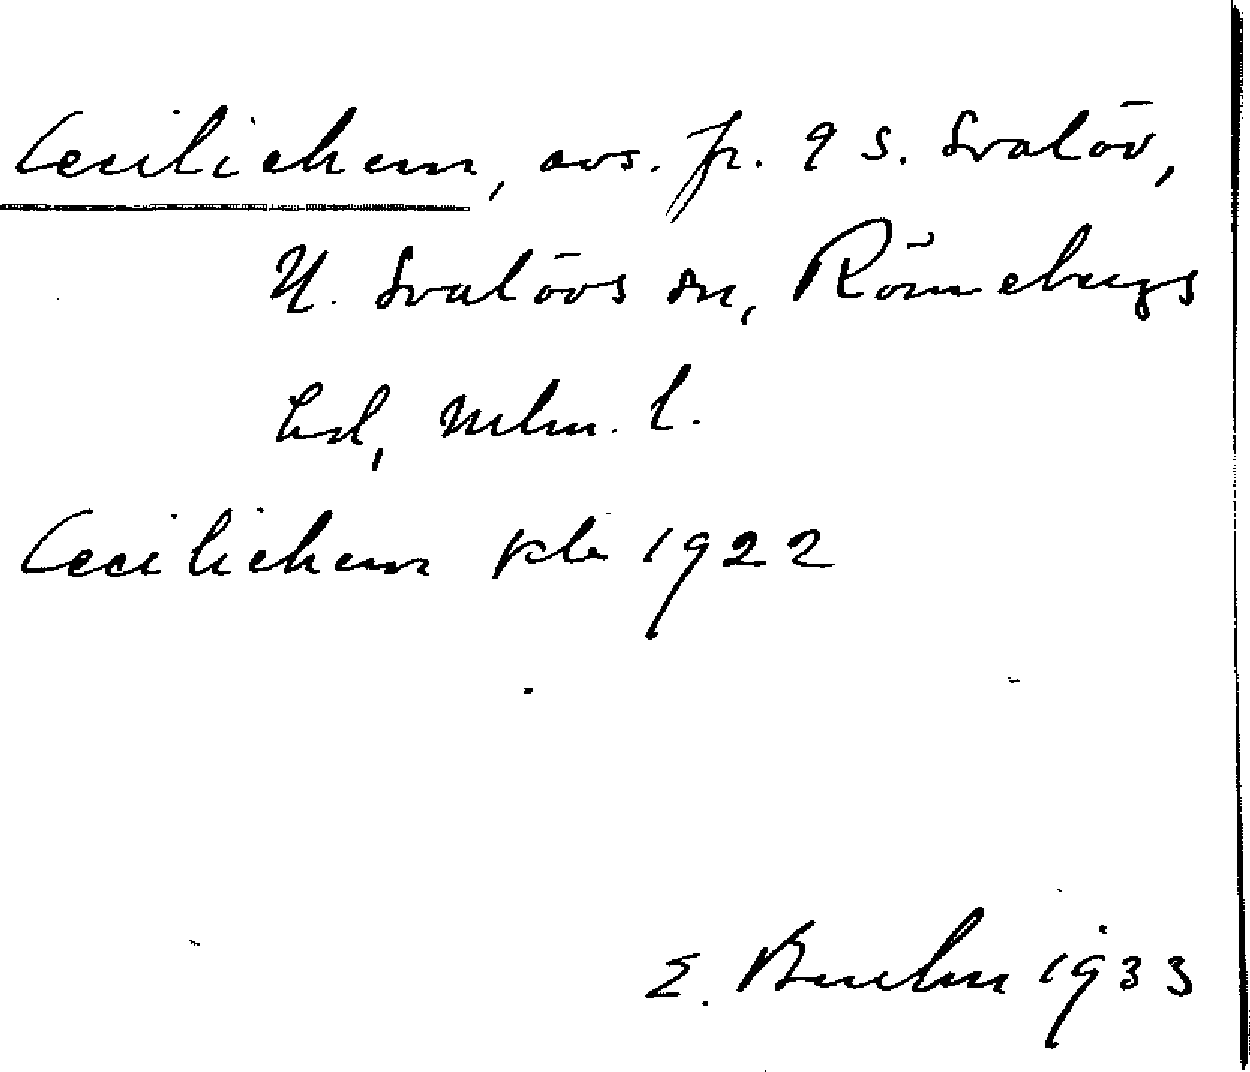 Ceciliehem, avs. fr. 9 S. Svalöv,
N. Svalövs sn, Rönnebergs
hd, Mlm. l.
Ceciliehem Pla 1922
E. 1933